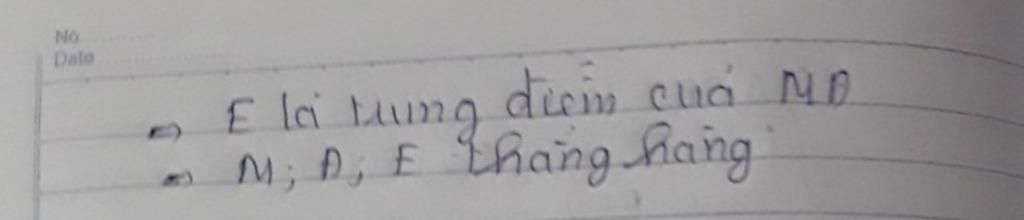 No.
Date
=> E là trung điểm của MD
=> M; D; E thẳng hàng